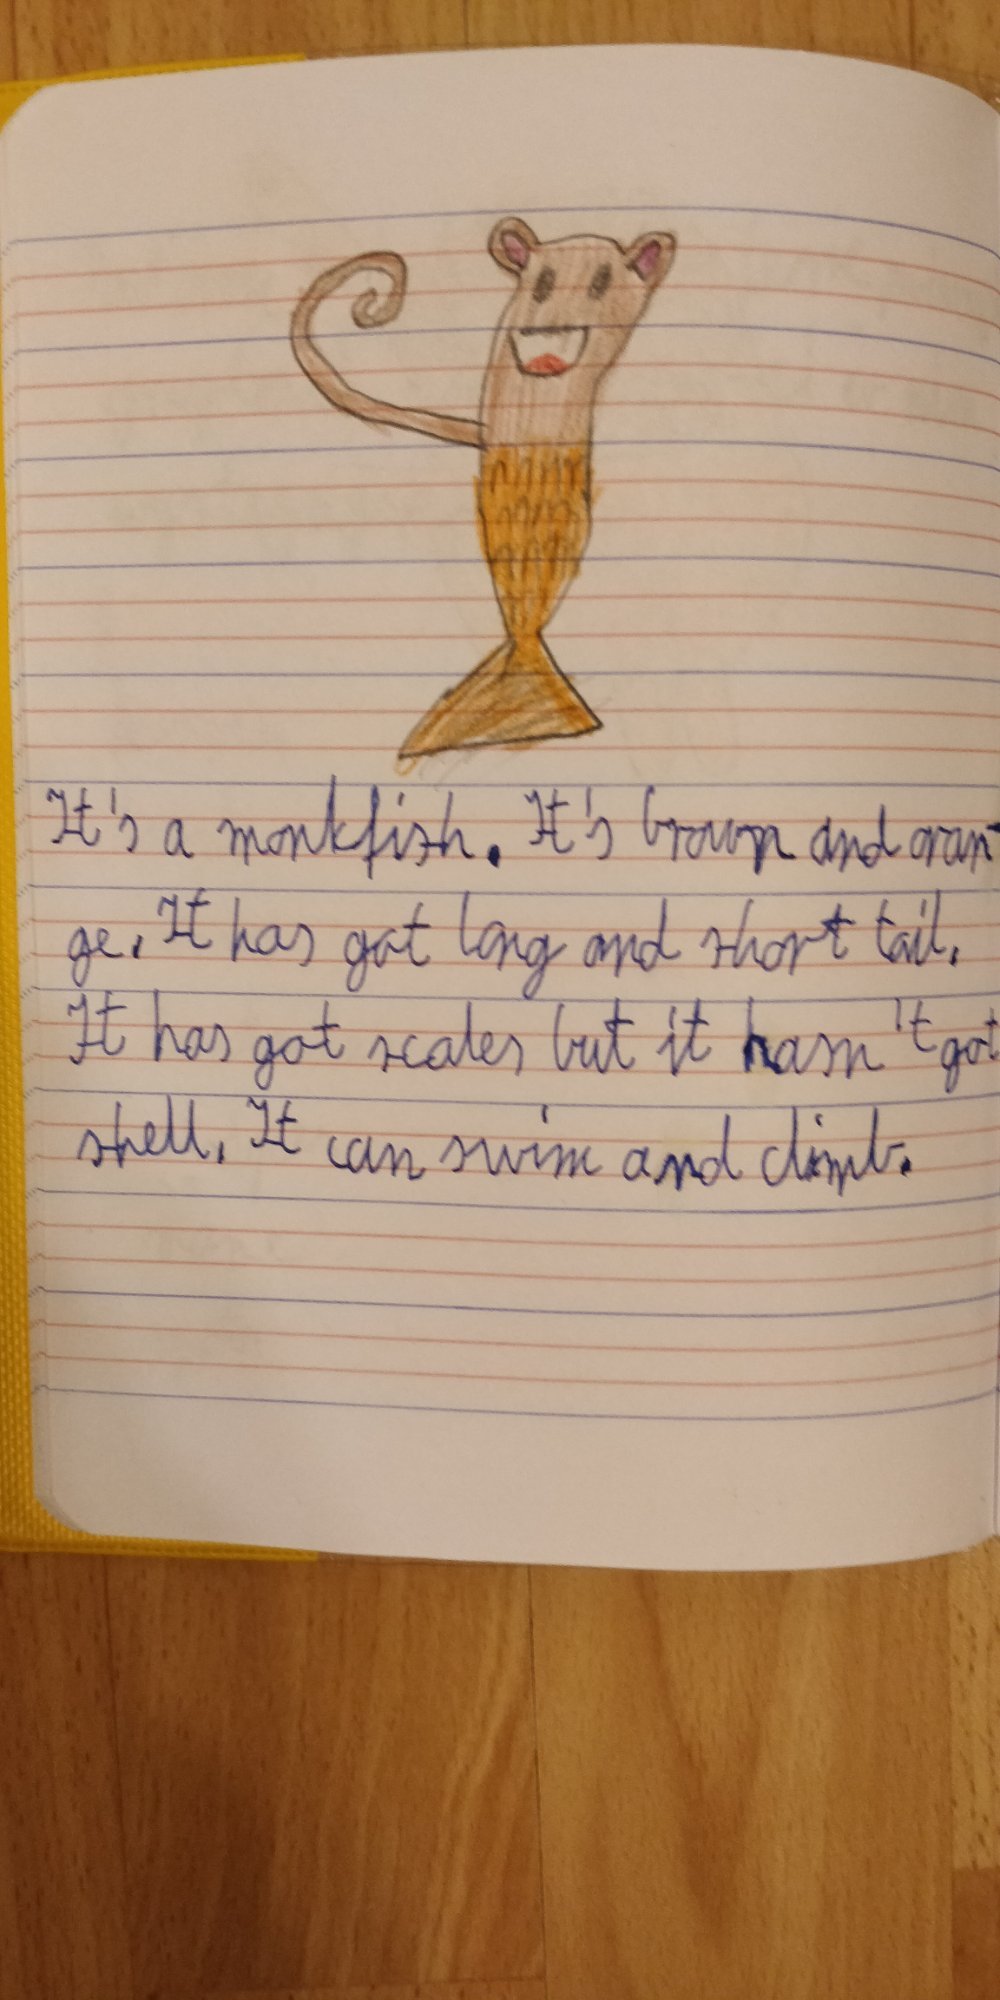 It's a monkfish. It's brown and oran-
ge. It has got long and short tail.
It has got scales but it hasn't got
shell. It can swim and climb.